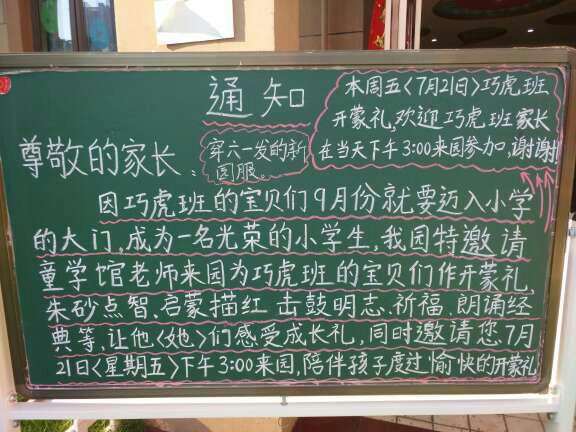 通知
本周五<7月21日>巧虎班
开蒙礼,欢迎巧虎班家长
在当天下午3:00来园参加,谢谢!
尊敬的家长、
穿六一发的新
园服。
因巧虎班的宝贝们9月份就要迈入小学
的大门,成为一名光荣的小学生,我园特邀请
童学馆老师来园为巧虎班的宝贝们作开蒙礼,
朱砂点智、启蒙描红、击鼓明志、祈福、朗诵经
典等,让他<她>们感受成长礼,同时邀请您7月
21日<星期五>下午3:00来园,陪伴孩子度过愉快的开蒙礼